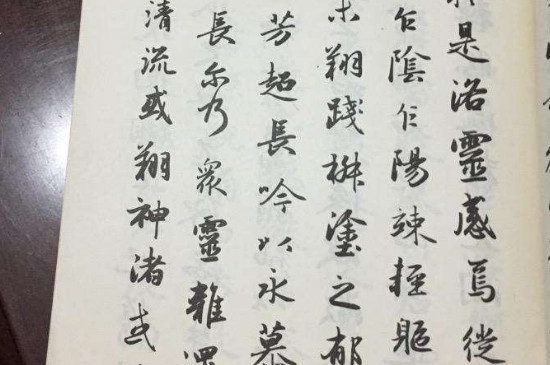 於是洛靈感焉徙
乍陰乍陽竦輕軀
未翔踐椒塗之郁
芳超長吟以永慕
長尔乃眾靈雜
清流或翔神渚或